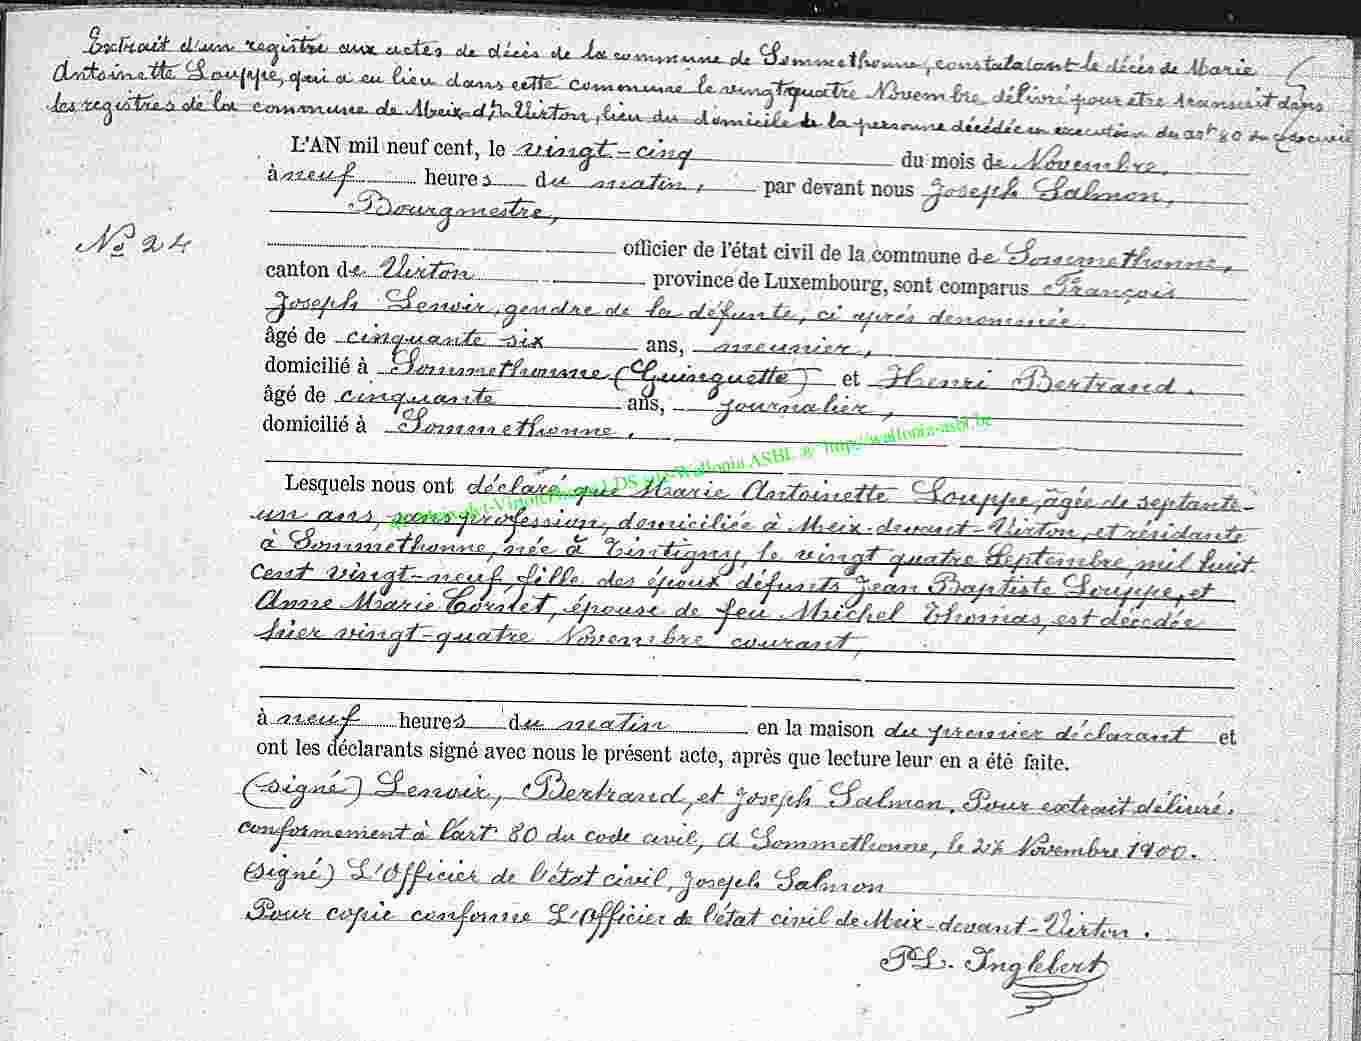 Extrait d'un registre aux actes de décès de la commune de Sommethonne, constatatant le décès de Marie
Antoinette Souppe, qui a eu lieu dans cette commune le vingt quatre Novembre, délivré pour être transcrit dans
les registres de la commune de Meix-dt-Virton, lieu du domicile de la personne décédée en exécution du art 80 du code civil
L'AN mil neuf cent, le vingt-cinq du mois de Novembre,
à neuf heures du matin, par devant nous Joseph Salmon,
Bourgmestre,
N° 24
officier de l'état civil de la commune de Sommethonne,
canton de Virton province de Luxembourg, sont comparus François
Joseph Lenoir, gendre de la défunte, ci après denommée
âgé de cinquante six ans, meunier,
domicilié à Sommethonne (Guinguette) et Henri Bertrand.
âgé de cinquante ans, journalier,
domicilié à Sommethonne.
Wallonia ASBL @ http://wallonia-asbl.be
Lesquels nous ont déclaré que Marie Antoinette Souppe, âgée de septante-
un ans, sans profession, domiciliée à Meix-devant-Virton, et résidante
à Sommethonne, née à Tintigny, le vingt quatre Septembre, mil huit
cent vingt-neuf, fille des époux défunts Jean Baptiste Souppe, et
Anne Marie Cornet, épouse de feu Michel Thomas, est décédée
hier vingt-quatre Novembre courant,
à neuf heures du matin en la maison du premier déclarant et
ont les déclarants signé avec nous le présent acte, après que lecture leur en a été faite.
(signé) Lenoir, Bertrand, et Joseph Salmon. Pour extrait délivré,
conformement à l'art 80 du code civil, à Sommethonne, le Novembre 1900.
(signé) L'Officier de l'état civil, Joseph Salmon
Pour copie conforme L'Officier de l'état civil de Meix-devant-Virton.
Inglebert